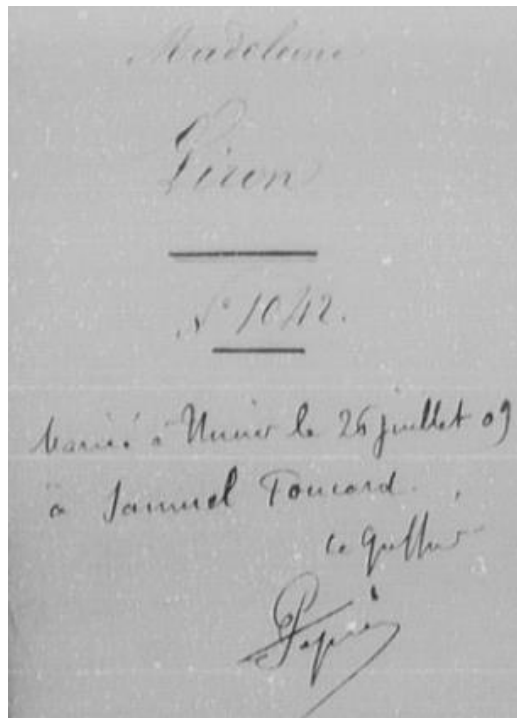 Madeleine
Giron
N° 1042.
Marié à le 26 juillet 09
à Samuel Toucard.
Le Greffier